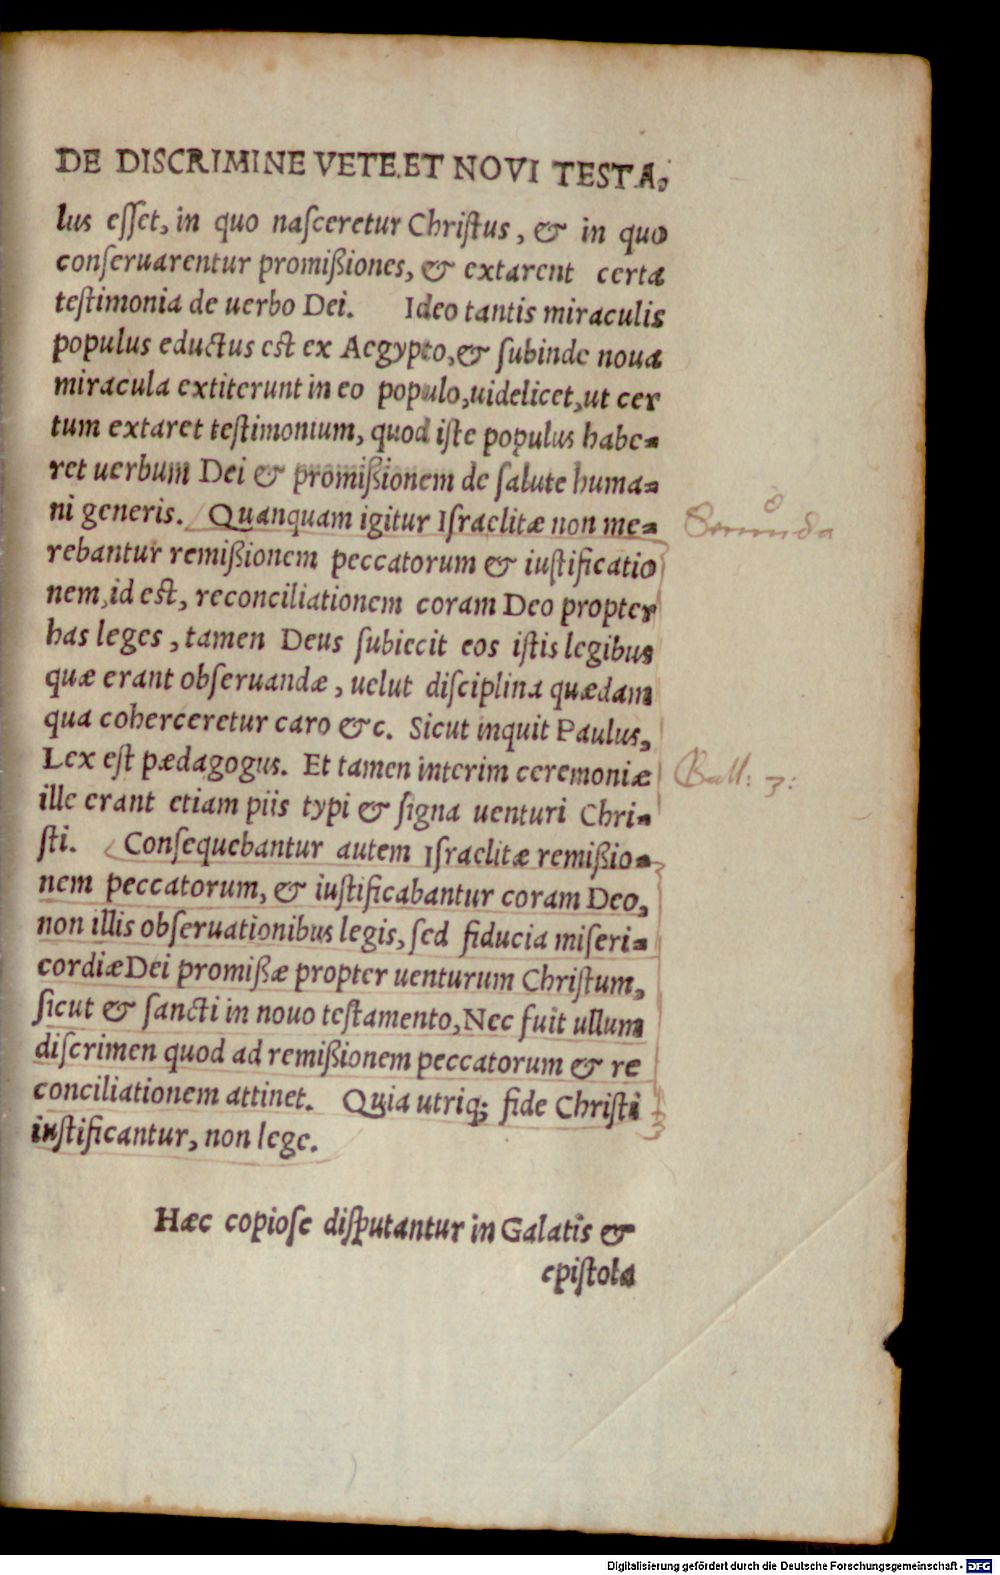 DE DISCRIMINE VETE.ET NOVI TESTA,
lus eſſet, in quo naſceretur Chriſtus, & in quo
conſeruarentur promiſsiones, & extarent certa
teſtimonia de uerbo Dei. Ideo tantis miraculis
populus eductus eſt ex Aegypto, & ſubinde noua
miracula extiterunt in eo populo, uidelicet, ut cer
tum extaret teſtimonium, quod iſte populus habe-
ret uerbum Dei & promiſsionem de ſalute huma-
ni generis. Quanquam igitur Iſraelitæ non me-
rebantur remiſsionem peccatorum & iuſtificatio
nem, id eſt, reconciliationem coram Deo propter
has leges, tamen Deus ſubiecit eos iſtis legibus
quæ erant obſeruandæ, uelut diſciplina quædam
qua coherceretur caro &c. Sicut inquit Paulus,
Lex eſt pædagogus. Et tamen interim ceremoniæ
ille erant etiam piis typi & ſigna uenturi Chri-
ſti. Conſequebantur autem Iſraelitæ remiſsio-
nem peccatorum, & iuſtificabantur coram Deo,
non illis obſeruationibus legis, ſed fiducia miſeri-
cordiæ Dei promiſsæ propter uenturum Chriſtum,
ſicut & ſancti in nouo teſtamento, Nec fuit ullum
diſcrimen quod ad remiſsionem peccatorum & re
conciliationem attinet. Quia utriq; fide Chriſti
iuſtificantur, non lege.
Hæc copioſe diſputantur in Galatis &
epiſtola
Secunda
Gall: 3:
Digitalisierung gefördert durch die Deutsche Forschungsgemeinschaft - DFG